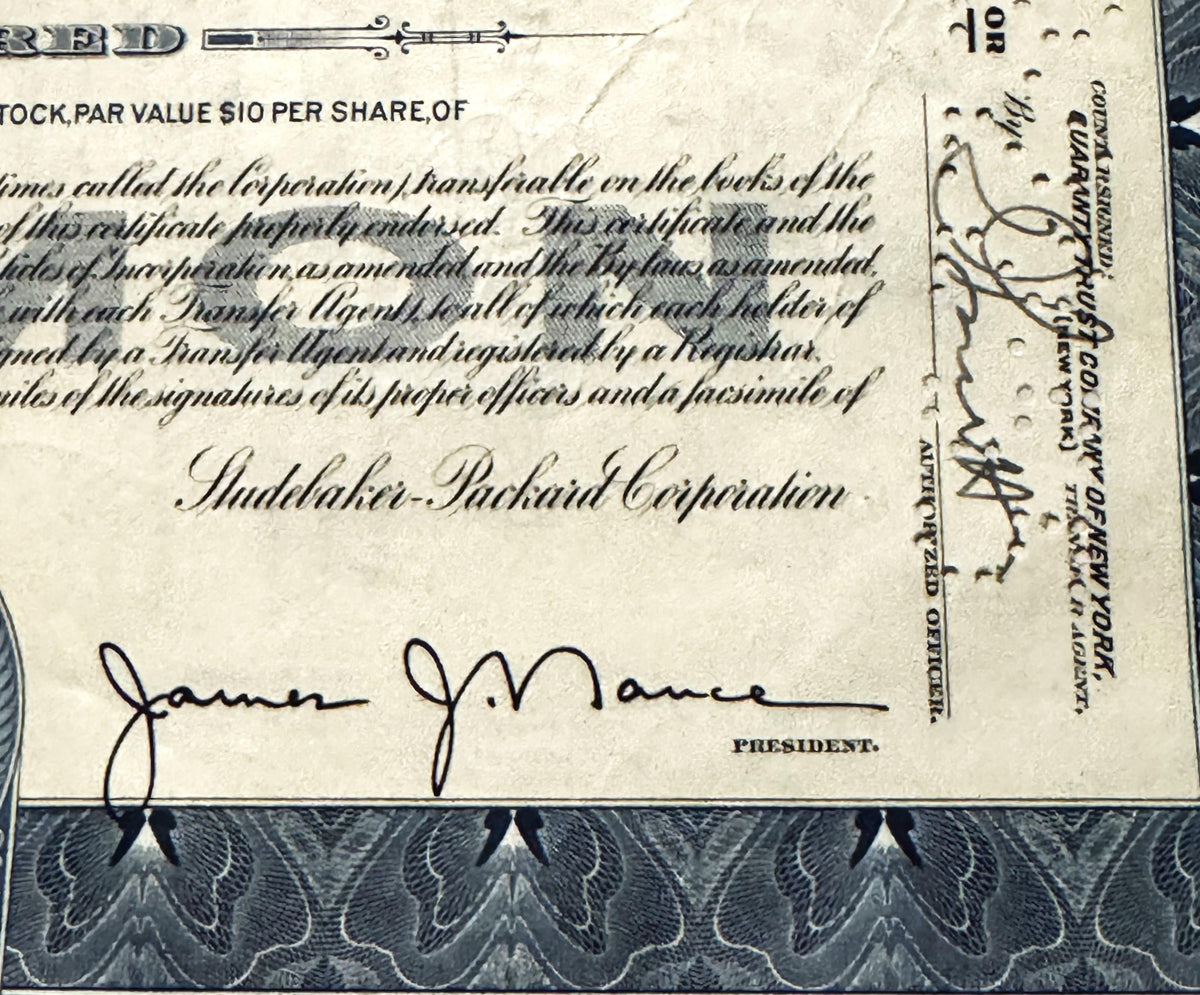 RED
TOCK, PAR VALUE $10 PER SHARE, OF
times called the Corporation), transferable on the books of the
of this certificate properly endorsed. This certificate and the
ticles of Incorporation, as amended and the By-laws as amended,
with each Transfer Agent), to all of which each holder, of
gned by a Transfer Agent and registered by a Registrar.
miles of the signatures of its proper officers and a facsimile of
MON
Studebaker-Packard Corporation
James J. Nance
PRESIDENT.
COUNTERSIGNED:
GUARANTY TRUST COMPANY OF NEW YORK,
(NEW YORK) TRANSFER AGENT.
By
AUTHORIZED OFFICER.
OR